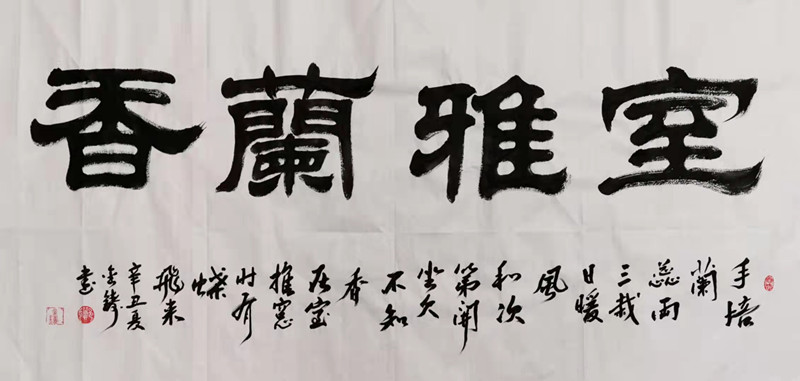 室雅蘭香
手培
蘭
蕊両
三栽
日暖
風
和次
第開
坐久
不知
香
在室
推窓
时有
蝶
飛来
辛丑夏
书